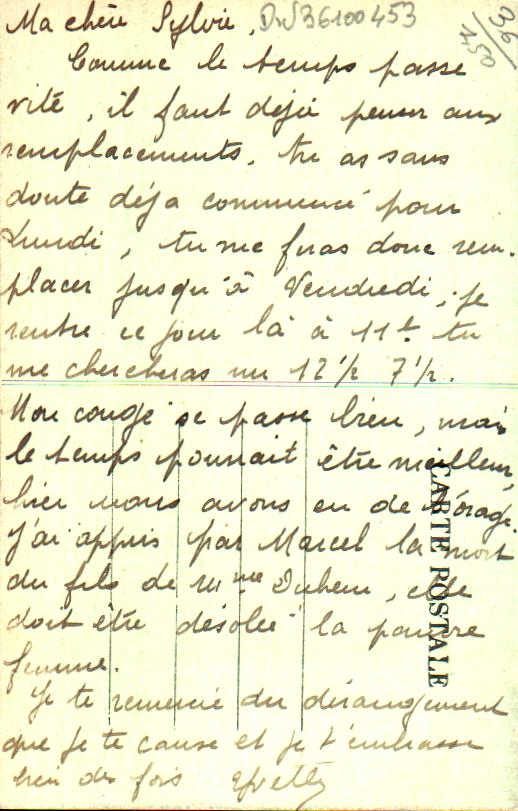 Ma chère Sylvie, DW36100453
36
450
Comme le temps passe
vite, il faut déjà penser aux
remplacements. tu as sans
doute déja commencé pour
Lundi, tu me feras donc rem-
placer jusqu'à Vendredi, je
rentre ce jour là à 11h tu
me chercheras un 12 1/2 7 1/2.
Mon congé se passe bien, mais
le temps pourrait être meilleur,
hier nous avons eu de l'orage.
J'ai appris par Marcel la mort
du fils de Mme Duhem, elle
doit être désolée la pauvre
femme.
Je te remercie du dérangement
que je te cause et je t'embrasse
bien des fois Yvette
CARTE POSTALE